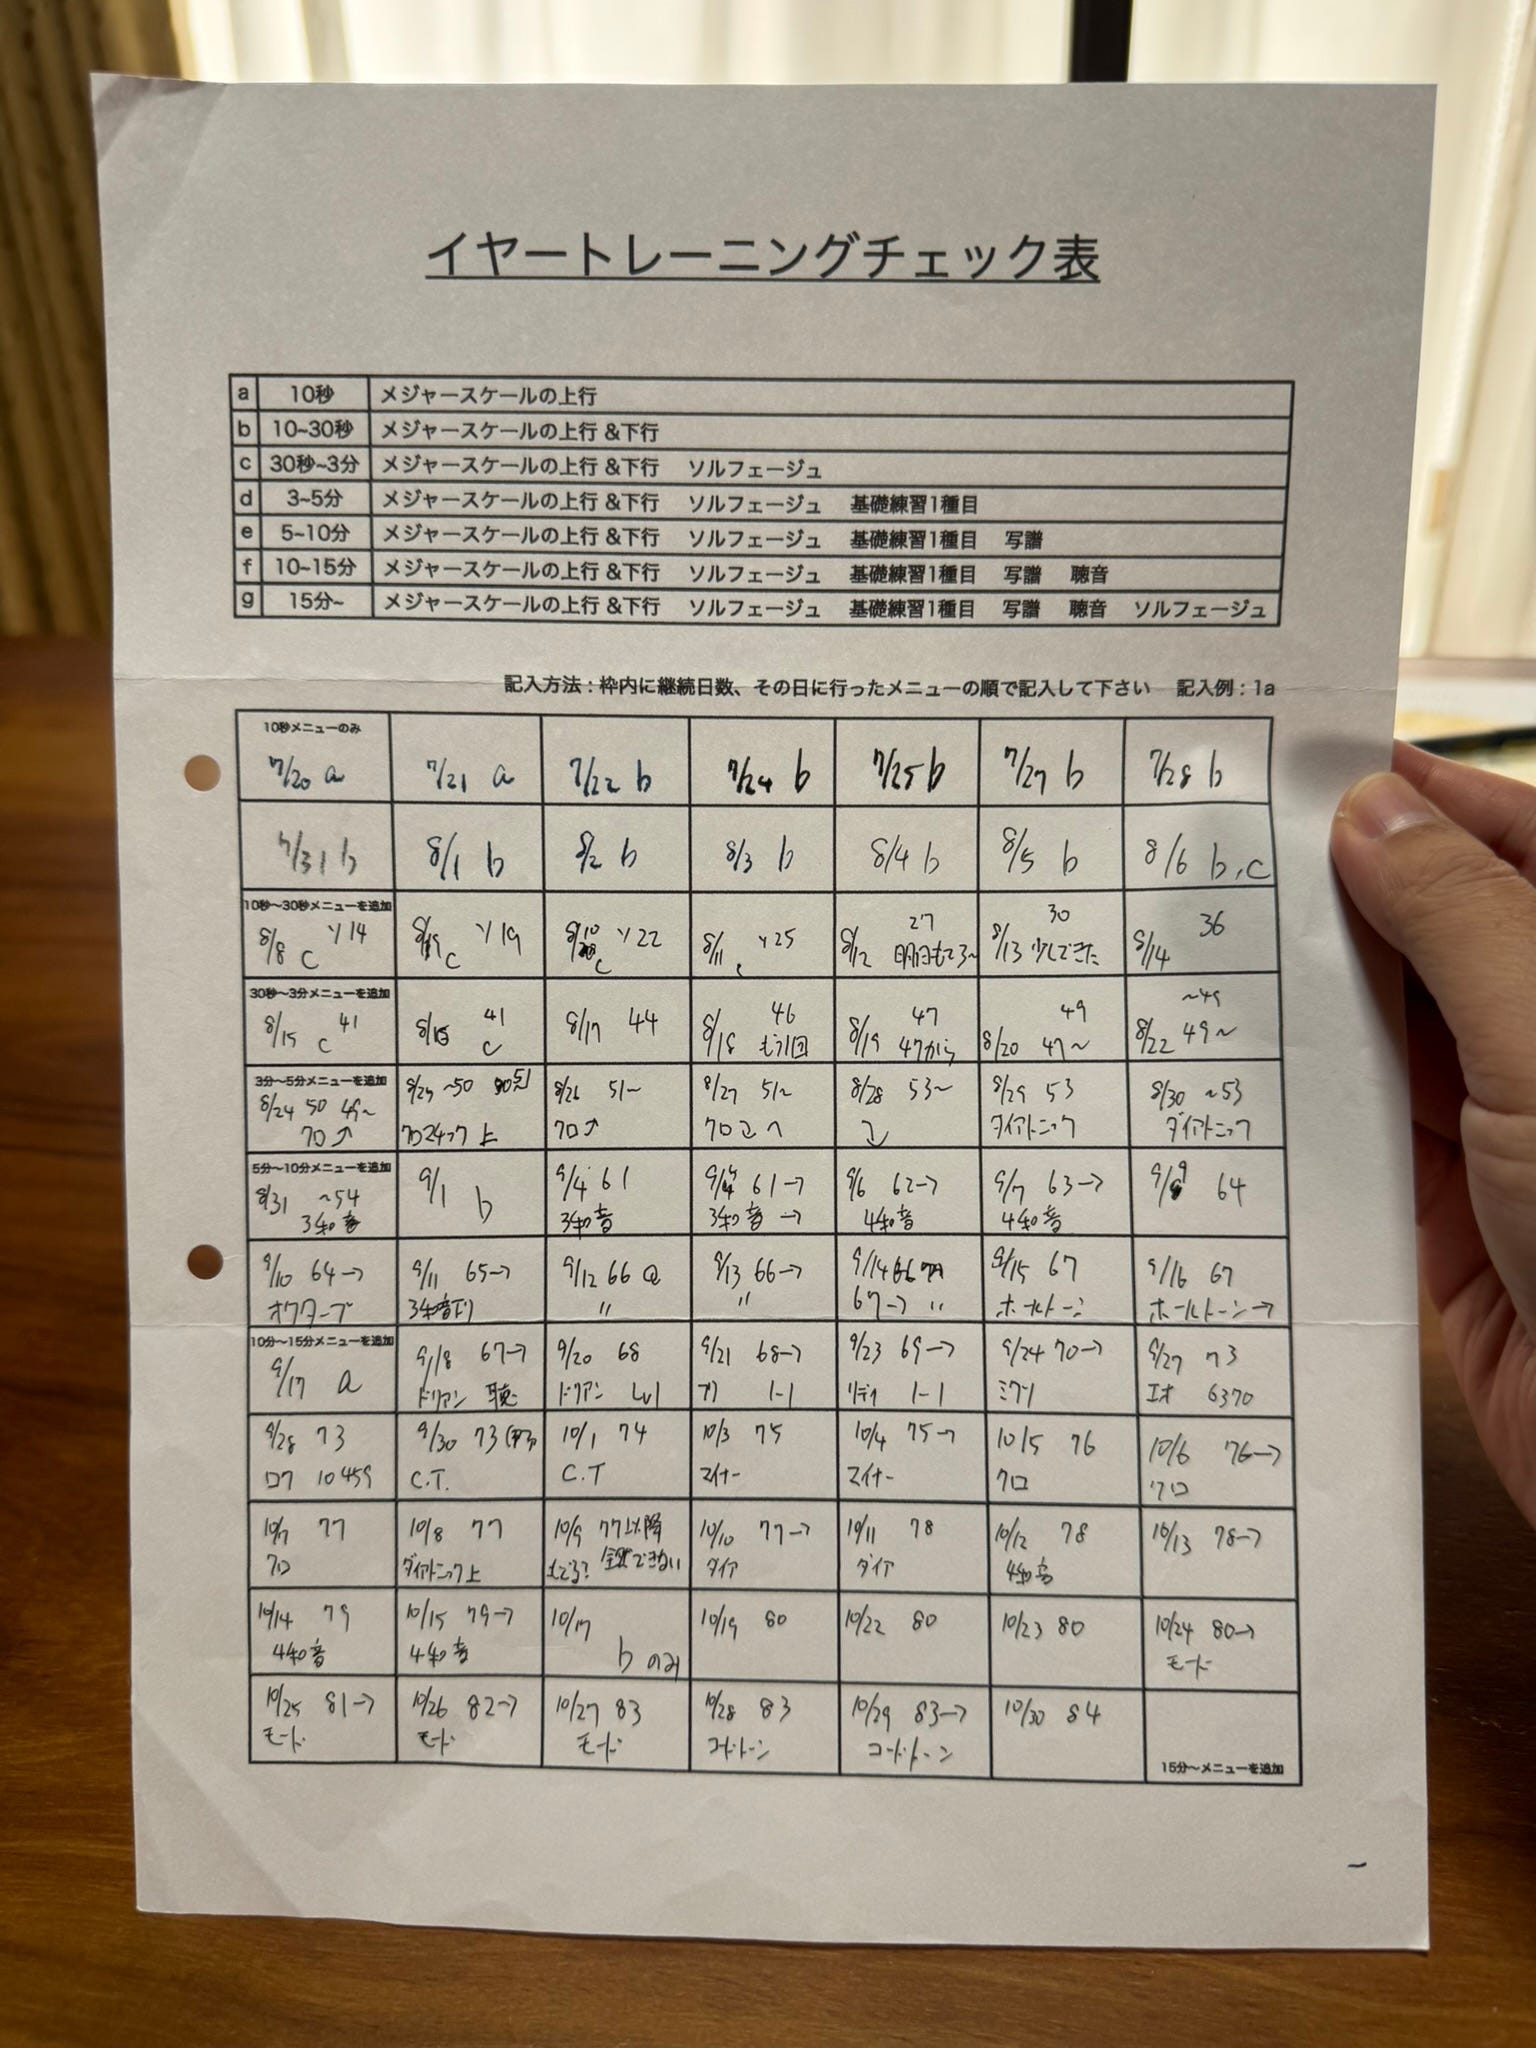 イヤートレーニングチェック表
a 10秒 メジャースケールの上行
b 10~30秒 メジャースケールの上行 &下行
c 30秒~3分 メジャースケールの上行 &下行 ソルフェージュ
d 3~5分 メジャースケールの上行 &下行 ソルフェージュ 基礎練習1種目
e 5~10分 メジャースケールの上行 &下行 ソルフェージュ 基礎練習1種目 写譜
f 10~15分 メジャースケールの上行 &下行 ソルフェージュ 基礎練習1種目 写譜 聴音
g 15分~ メジャースケールの上行 &下行 ソルフェージュ 基礎練習1種目 写譜 聴音 ソルフェージュ
記入方法：枠内に継続日数、その日に行ったメニューの順で記入して下さい 記入例：1a
10秒メニューのみ
7/20 a
7/21 a
7/22 b
7/24 b
7/25 b
7/27 b
7/28 b
7/31 b
8/1 b
8/2 b
8/3 b
8/4 b
8/5 b
8/6 b,c
10秒〜30秒メニューを追加
8/8 c ソ14
8/9 c ソ19
8/10 c ソ22
8/11 c ソ25
27
8/12
30
8/13 少しできた
36
8/14
30秒〜3分メニューを追加
8/15 c 41
41
c
8/17 44
46
8/18 もう1回
47
8/19 47から
49
8/20 47〜
~49
8/22 49〜
3分〜5分メニューを追加
8/24 50 49〜
クロ⤴
8/25 ~50
クロマチック 上
8/26 51〜
クロ⤴
8/27 51〜
クロ
8/28 53〜
8/29 53
ダイアトニック
8/30 ~53
ダイアトニック
5分〜10分メニューを追加
8/31 ~54
3和音
9/1 b
9/4 61
3和音
61→
3和音 →
9/6 62→
4和音
9/7 63→
4和音
9/9 64
9/10 64→
オクターブ
9/11 65→
3和音
9/12 66
〃
9/13 66→
〃
9/14 66
67→ 〃
9/15 67
ホールトーン
9/16 67
ホールトーン→
10分〜15分メニューを追加
9/17 a
9/18 67→
ドリアン 聴
9/20 68
ドリアン Lv1
9/21 68→
フリ 1-1
9/23 69→
リディ 1-1
9/24 70→
ミクソ
9/27 73
エオ 6370
9/28 73
ロク 10459
9/30 73
C.T.
10/1 74
C.T
10/3 75
マイナー
10/4 75→
マイナー
10/5 76
クロ
10/6 76→
クロ
10/7 77
クロ
10/8 77
ダイアトニック上
10/9 77以降
全然できない
10/10 77→
ダイア
10/11 78
ダイア
10/12 78
4和音
10/13 78→
10/14 79
4和音
10/15 79→
4和音
10/17
b のみ
10/19 80
10/22 80
10/23 80
10/24 80→
モード
10/25 81→
モード
10/26 82→
モード
10/27 83
モード
10/28 83
コードトーン
10/29 83→
コードトーン
10/30 84
15分〜メニューを追加